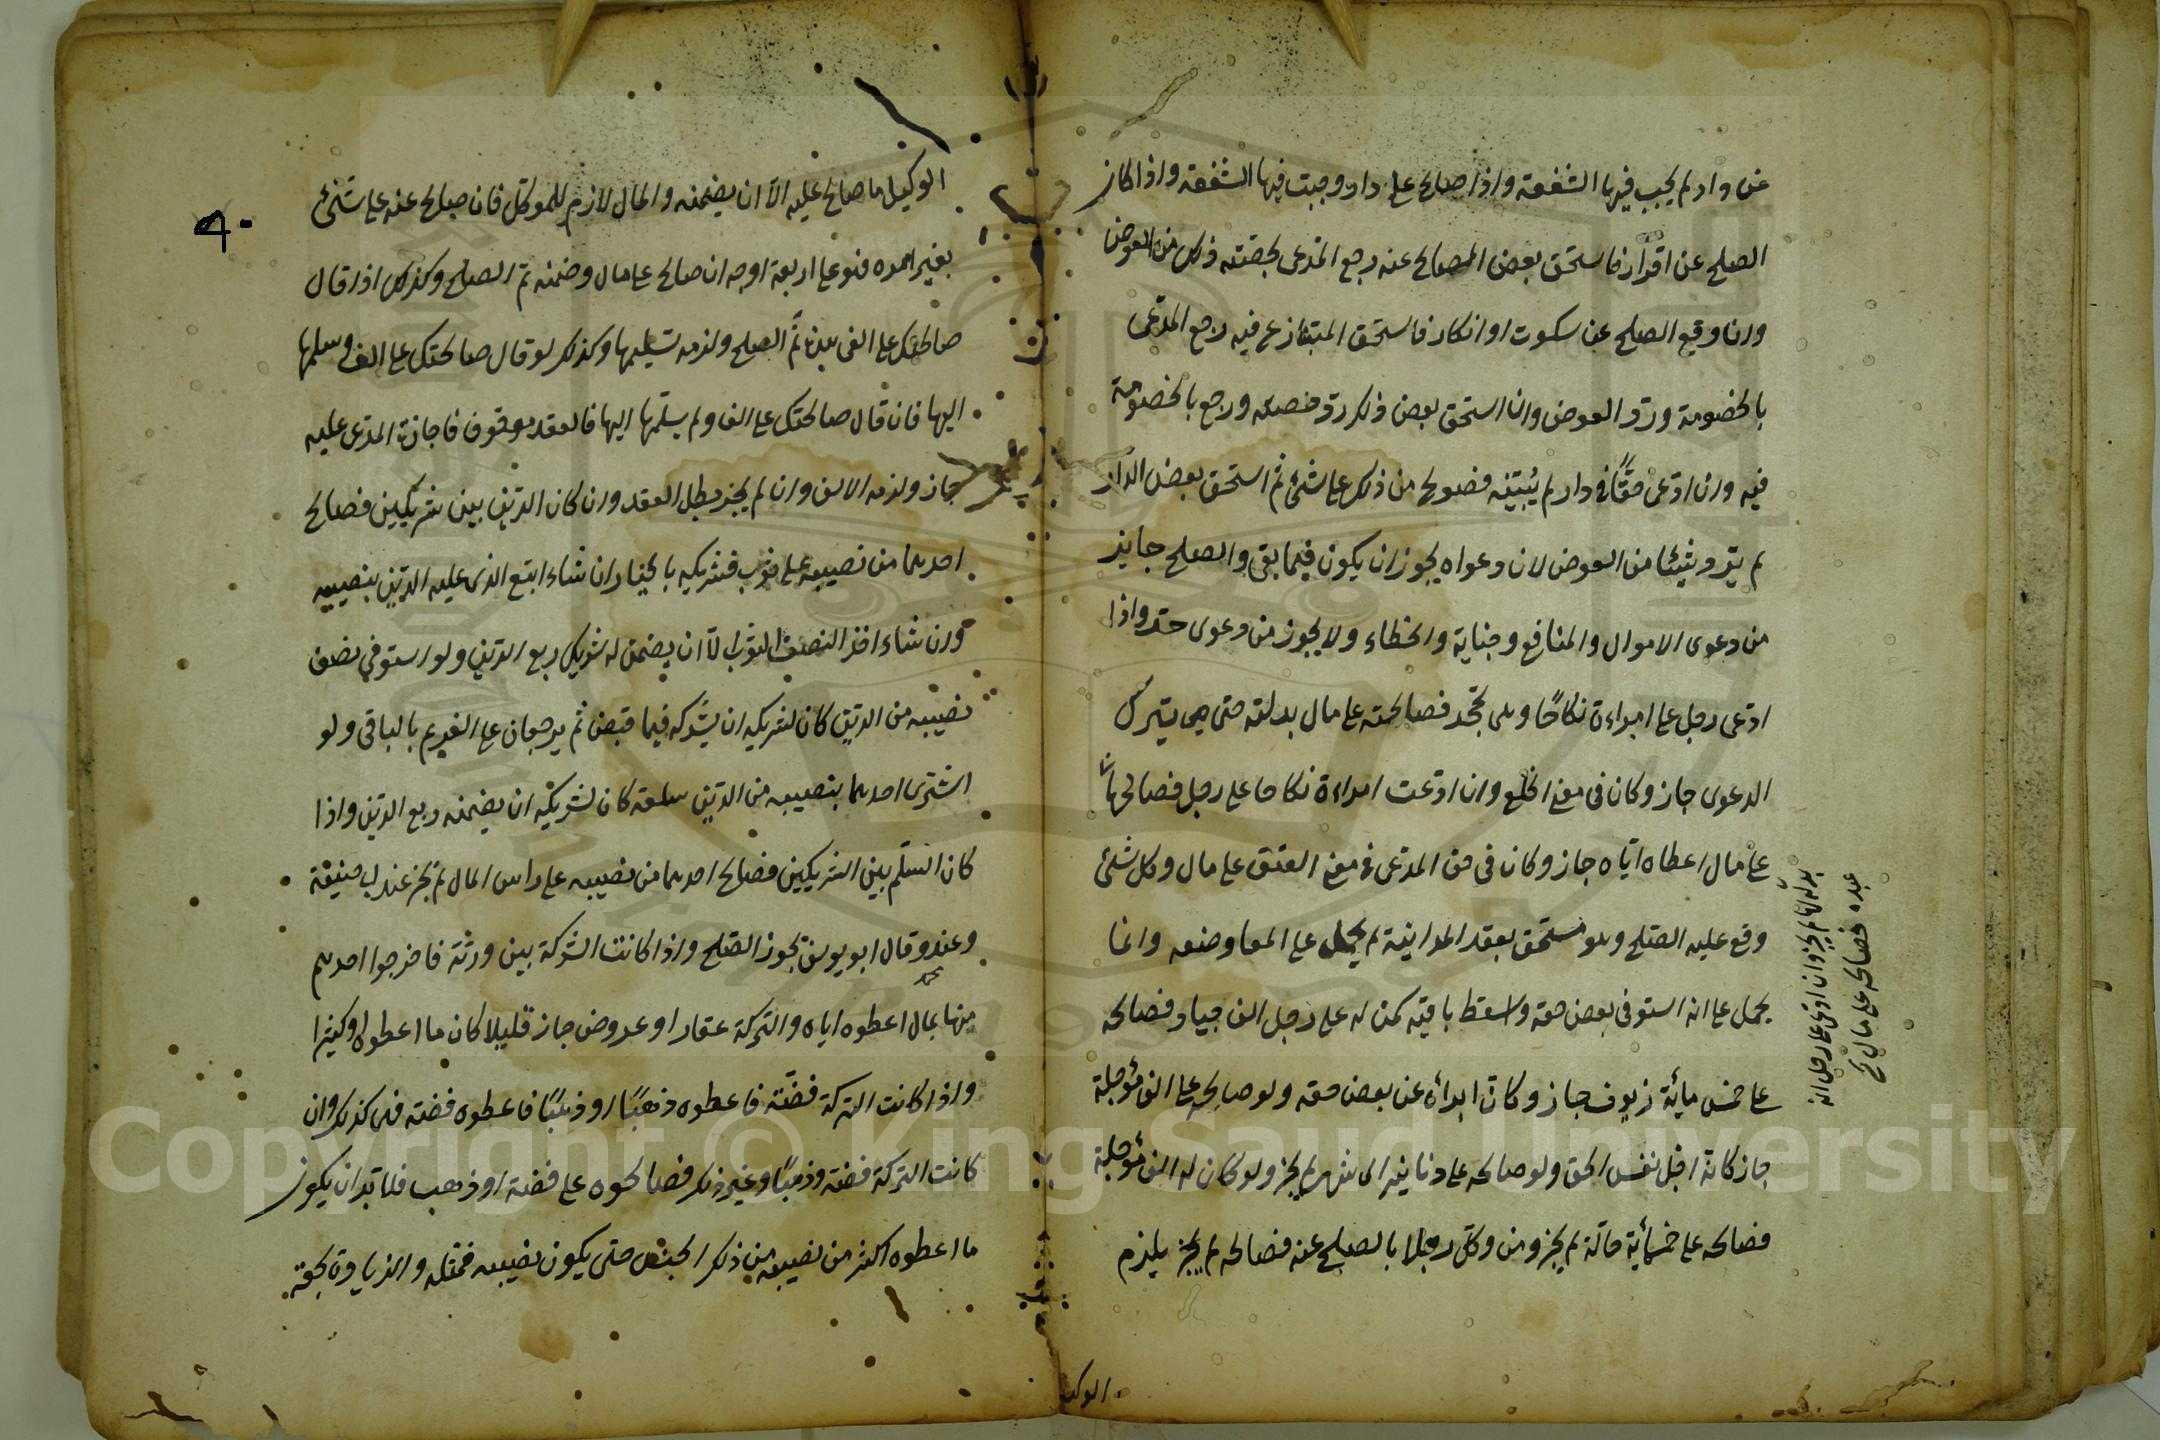 عن دار لم يجب فيها الشفعة واذا صالح على دار وجبت فيها الشفعة واذا كان
الصلح عن اقرار فاستحق بعض المصالح عنه رجع المدعى بحصته ذلك من العوض
وان وقع الصلح عن سكوت او انكار فاستحق المتنازع فيه رجع المدعى
بالخصومة ورد العوض وان استحق بعض ذلك رد حصته ورجع بالخصومة
فيه وان ادعى حقًا فى دار لم يبينه فصولح من ذلك على شئ ثم استحق بعض الدار
لم يرد شيئا من العوض لان دعواه يجوز ان يكون فيما بقى والصلح جايز
من دعوى الاموال والمنافع وجناية والخطاء ولا يجوز من دعوى حد واذا
ادعى رجل على امراءة نكاحًا وهى تجحد فصالحته على مال بذلته حتى يترك
الدعوى جاز وكان فى معنى الخلع وان ادعت امراءة نكاحا على رجل فصالحها
على مال اعطاه اياه جاز وكان فى حق المدعى فى معنى العتق على مال وكل شئ
وقع عليه الصلح وهو مستحق بعقد المداينة لم يحمل على المعاوضه وانما
يحمل على انه استوفى بعض حقه واسقط باقيه كمن له على رجل الف جياد فصالحه
على خمس مائة زيوف جاز وكان ابراه عن بعض حقه ولو صالحه على الف مؤجلة
جاز كانه اجل نفس الحق ولو صالحه على دنانير الى شهر لم يجز ولو كان له الف مؤجلة
فصالحه على خمسمائة حالة لم يجز ومن وكل رجلا بالصلح عنه فصالحه لم يلزم
بذله لها لم يجز وان ادعى على رجل انه
عبده فصالحه على مال
الوكيل
٩٠
الوكيل ما صالح عليه الا ان يضمنه والمال لازم للموكل فان صالح عنه على شئ
بغير امره فهو على اربعة اوجه ان صالح على مال وضمنه تم الصلح وكذلك اذا قال
صالحتك على الفى هذه تم الصلح ولزمه تسليمها وكذلك لو قال صالحتك على الف وسلمها
اليها فان قال صالحتك على الف ولم يسلمها اليها فالعقد موقوف فاجازه المدعى عليه
جاز ولزمه الالف وان لم يجز بطل العقد وان كان الدين بين شريكين فصالح
احدهما من نصيبه على ثوب فشريكه بالخيار ان شاء اتبع الذى عليه الدين بنصيبه
وان شاء اخذ النصف الثوب الا ان يضمن له شريكه ربع الدين ولو استوفى نصف
نصيبه من الدين كان لشريكه ان يشركه فيما قبض ثم يرجعان على الغريم بالباقى ولو
اشترى احدهما بنصيبه من الدين سلعة كان لشريكه ان يضمنه ربع الدين واذا
كان السلم بين الشريكين فصالح احدهما من نصيبه على راس المال لم يجز عند ابى حنيفة
وعند وقال ابو يوسف يجوز الصلح واذا كانت التركة بين ورثة فاخرجوا احدهم
محمد
منها بمال اعطوه اياه والتركة عقار او عروض جاز قليلا كان ما اعطوه او كثيرا
واذا كانت التركة فضّة فاعطوه ذهبًا او ذهبًا فاعطوه فضة فهى كذلك وان
كانت التركة فضة وذهبًا وغير ذلك فصالحوه على فضة او ذهب فلا بد ان يكون
ما اعطوه اكثر من نصيبه من ذلك الجنس حتى يكون نصيبه فمثله والزيادة بحقه
Copyright © King Saud University